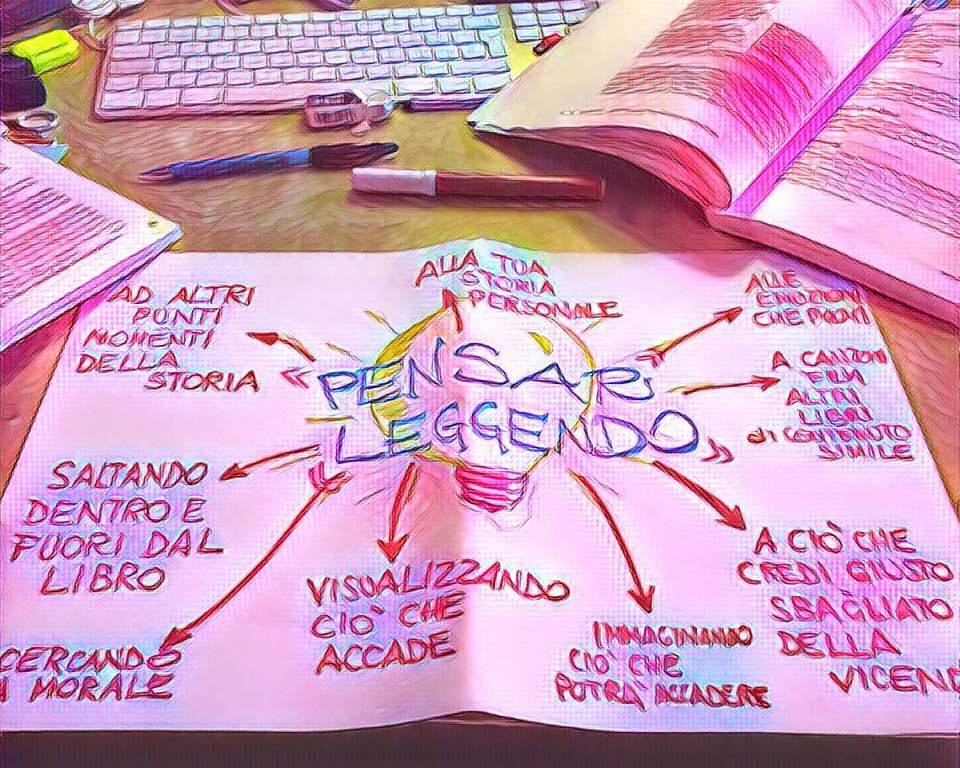 ALLA TUA
STORIA
PERSONALE
AD ALTRI
PUNTI
MOMENTI
DELLA
STORIA
ALLE
EMOZIONI
CHE PROVI
« PENSAR
LEGGENDO »
A CANZONI
FILM
ALTRI
LIBRI
di CONTENUTO
SIMILE
SALTANDO
DENTRO E
FUORI DAL
LIBRO
A CIÒ CHE
CREDI GIUSTO
SBAGLIATO
DELLA
VICEND
VISUALIZZANDO
CIÒ CHE
ACCADE
IMMAGINANDO
CIÒ CHE
POTRÀ ACCADERE
CERCANDO
A MORALE